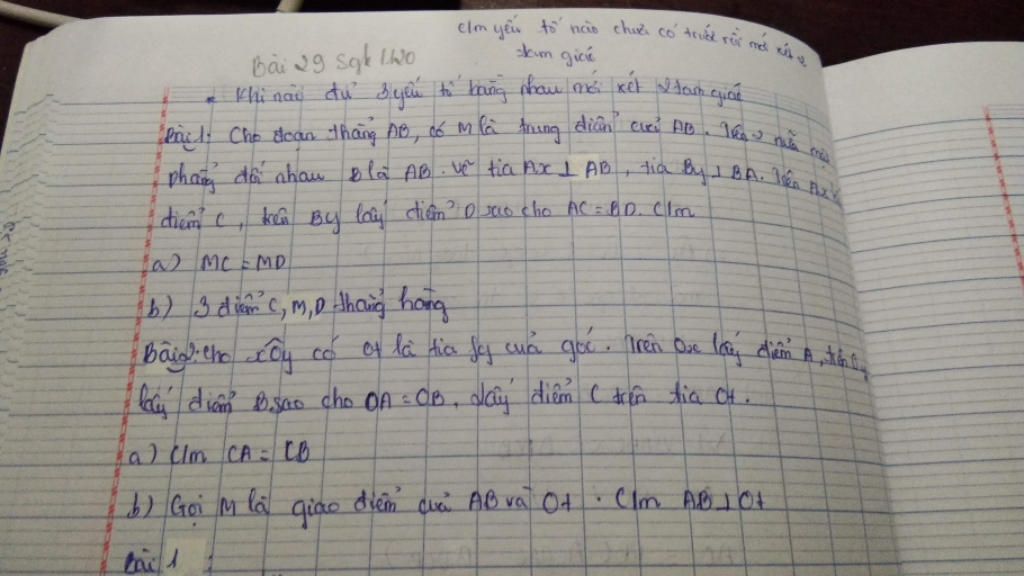 c/m yếu tố nào chưa có trước rồi mới xét 2
tam giác
Bài 29 Sgk 1.120
- Khi nào đủ 3 yếu tố bằng nhau mới xét 2 tam giác
Bài 1: Cho đoạn thẳng AB, có M là trung điểm của AB. Trên 2 nửa mặt
phẳng đối nhau bờ là AB. vẽ tia Ax ⊥ AB, tia By ⊥ BA. Trên Ax lấy
điểm C, trên By lấy điểm D sao cho AC = BD. C/m
a) MC = MD
b) 3 điểm C, M, D thẳng hàng
Bài 2: cho xÔy có Ot là tia fg của góc. Trên Ox lấy điểm A, trên Oy
lấy điểm B sao cho OA = OB. Lấy điểm C trên tia Ot.
a) C/m CA = CB
b) Gọi M là giao điểm của AB và Ot. C/m AB ⊥ Ot
Bài 1: